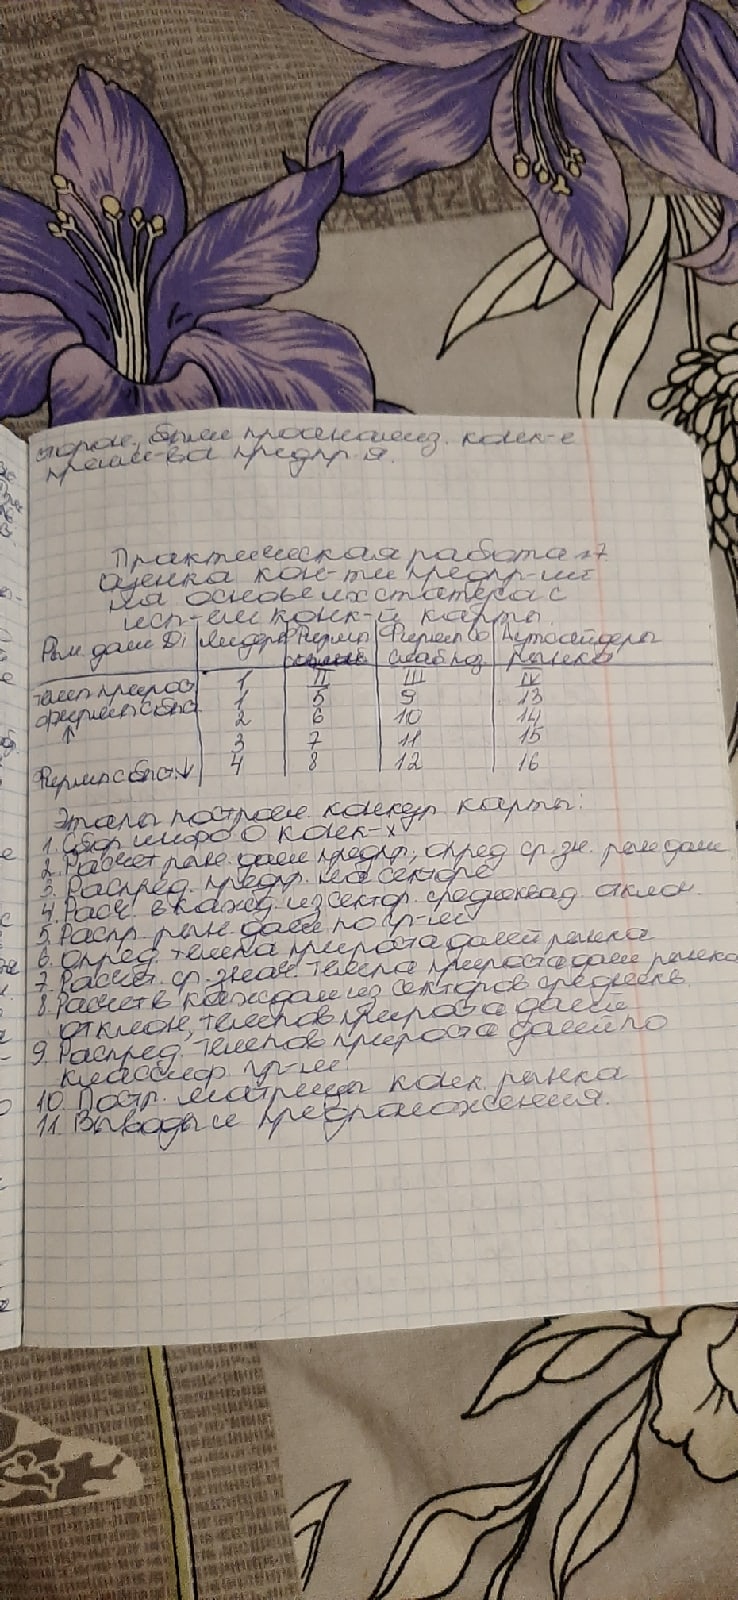 сторон, были проанализ. конк-е
преим-ва предпр-я.
Практическая работа №7
оценка кон-ти предпр-ий
на основе их статуса с
исп-ем конк-й карты.
Рын. доли Di Лидеры Фирмы Фирмы со Аутсайдеры
слаб поз рынка
I II III IV
темп прирос 1 5 9 13
2 6 10 14
↑ 3 7 11 15
Фирмы с быст.↓ 4 8 12 16
Этапы построен конкур карты:
1. Сбор инфо о конк-х
2. Расчет рын. доли предпр., опред ср. зн. рын доли
3. Распред. предпр. на сектора
4. Расч. в кажд. из сектор. среднеквад. отклон.
5. Распр. рын. доли по гр-ам
6. Опред. темпа прироста долей рынка
7. Расчет. ср. знач. темпа прироста доли рынка
8. Расчет в каждом из секторов среднекв.
отклон, темпов прироста доли
9. Распред. темпов прироста долей по
классиф гр-ам
10. Постр. матрицы конк. рынка
11. Выводы и предположения.